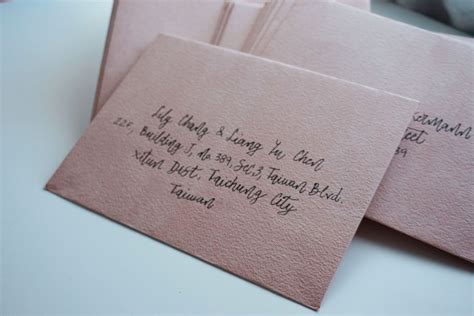 Lily Chang & Liang Yu Chen
22F, Building J, no 389, Sec,3, Taiwan Blvd,
Xitun Dist, Taichung City
Taiwan